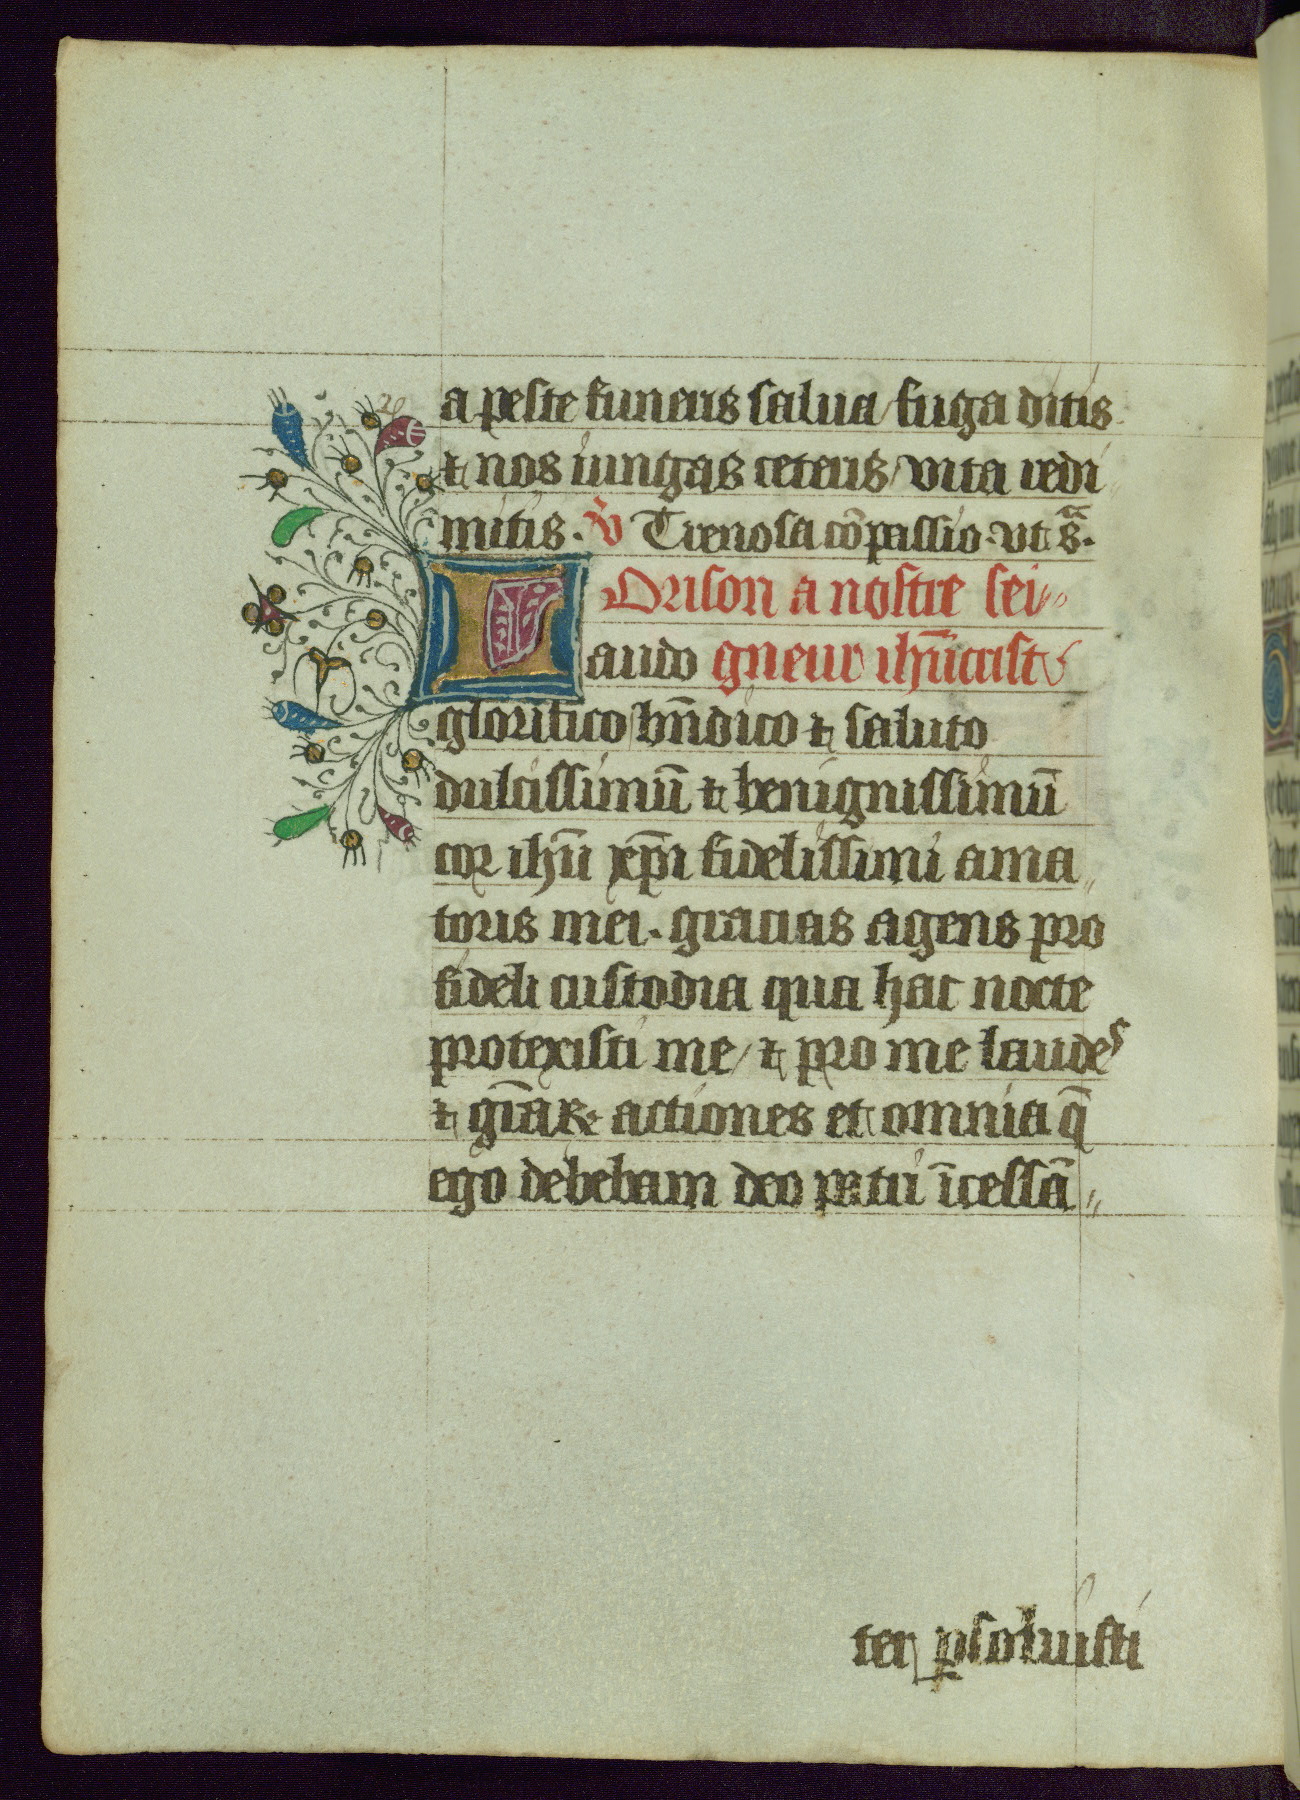 a peste funeris salua / fuga ditis
⁊ nos iungas ceteris / vita redi
mitis. v̄ Trenosa cōpassio. vt s̄ͣ.
Orison a nostre sei
audo gneur ihūcrist
glorifico / bn̄dico ⁊ saluto
dulcissimū ⁊ benignissimū
cor ihū xp̄i fidelissimi ama
toris mei. gracias agens pro
fideli custodia qua hac nocte
protexisti me / ⁊ pro me laudes
⁊ gr̄aꝝ actiones et omnia q̄
ego debebam deo patri īcessā
ter ꝑsoluisti